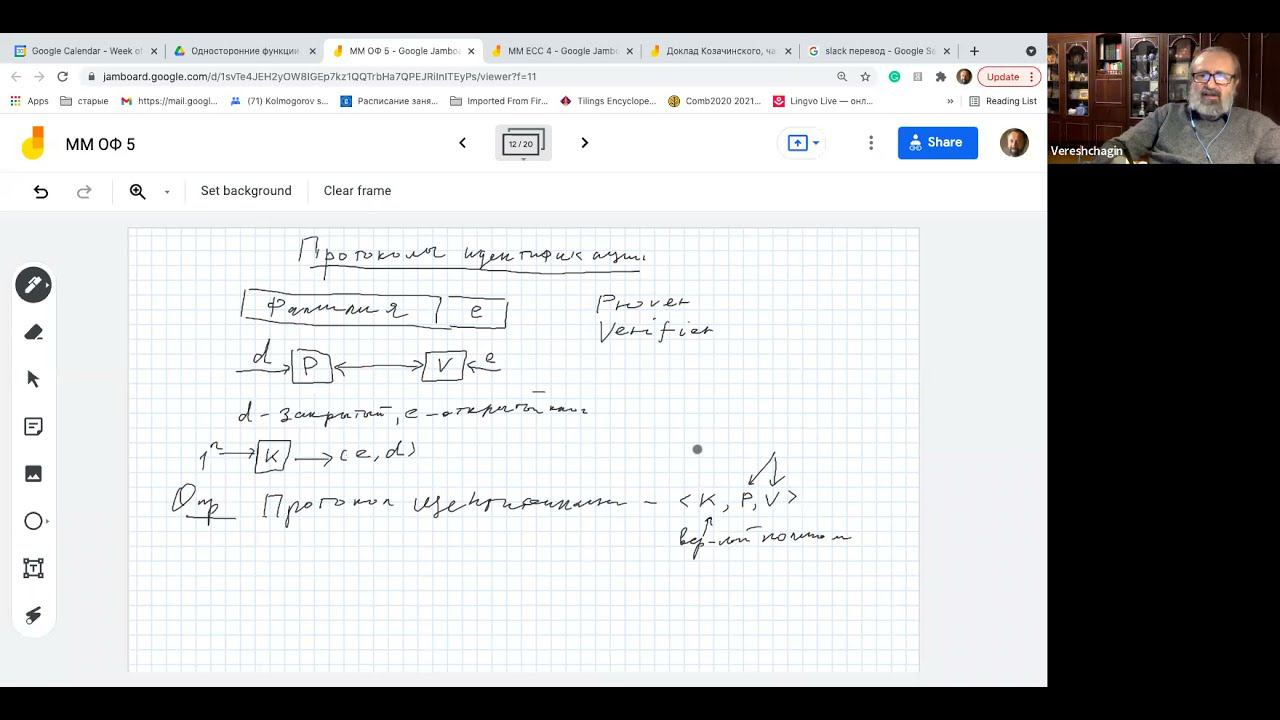 Google Calendar - Week of
Односторонние функции
ММ ОФ 5 - Google Jamboa
MM ECC 4 - Google Jambo
Доклад Козачинского, ча
slack перевод - Google Se
jamboard.google.com/d/1svTe4JEH2yOW8IGEp7kz1QQTrbHa7QPEJRiInITEyPs/viewer?f=11
Update
Apps
старые
https://mail.googl...
(71) Kolmogorov s...
Расписание заня...
Imported From Fir...
Tilings Encyclope...
Comb2020 2021...
Lingvo Live — онл...
»
Reading List
Vereshchagin
ММ ОФ 5
12 / 20
Share
Set background
Clear frame
Протоколы идентификации
Фамилия e
Prover
Verifier
d P V e
d - закрытый, e - открытый ключ
1ⁿ → K → (e, d)
Опр Протокол идентификации - <K, P, V>
вер-ный полином